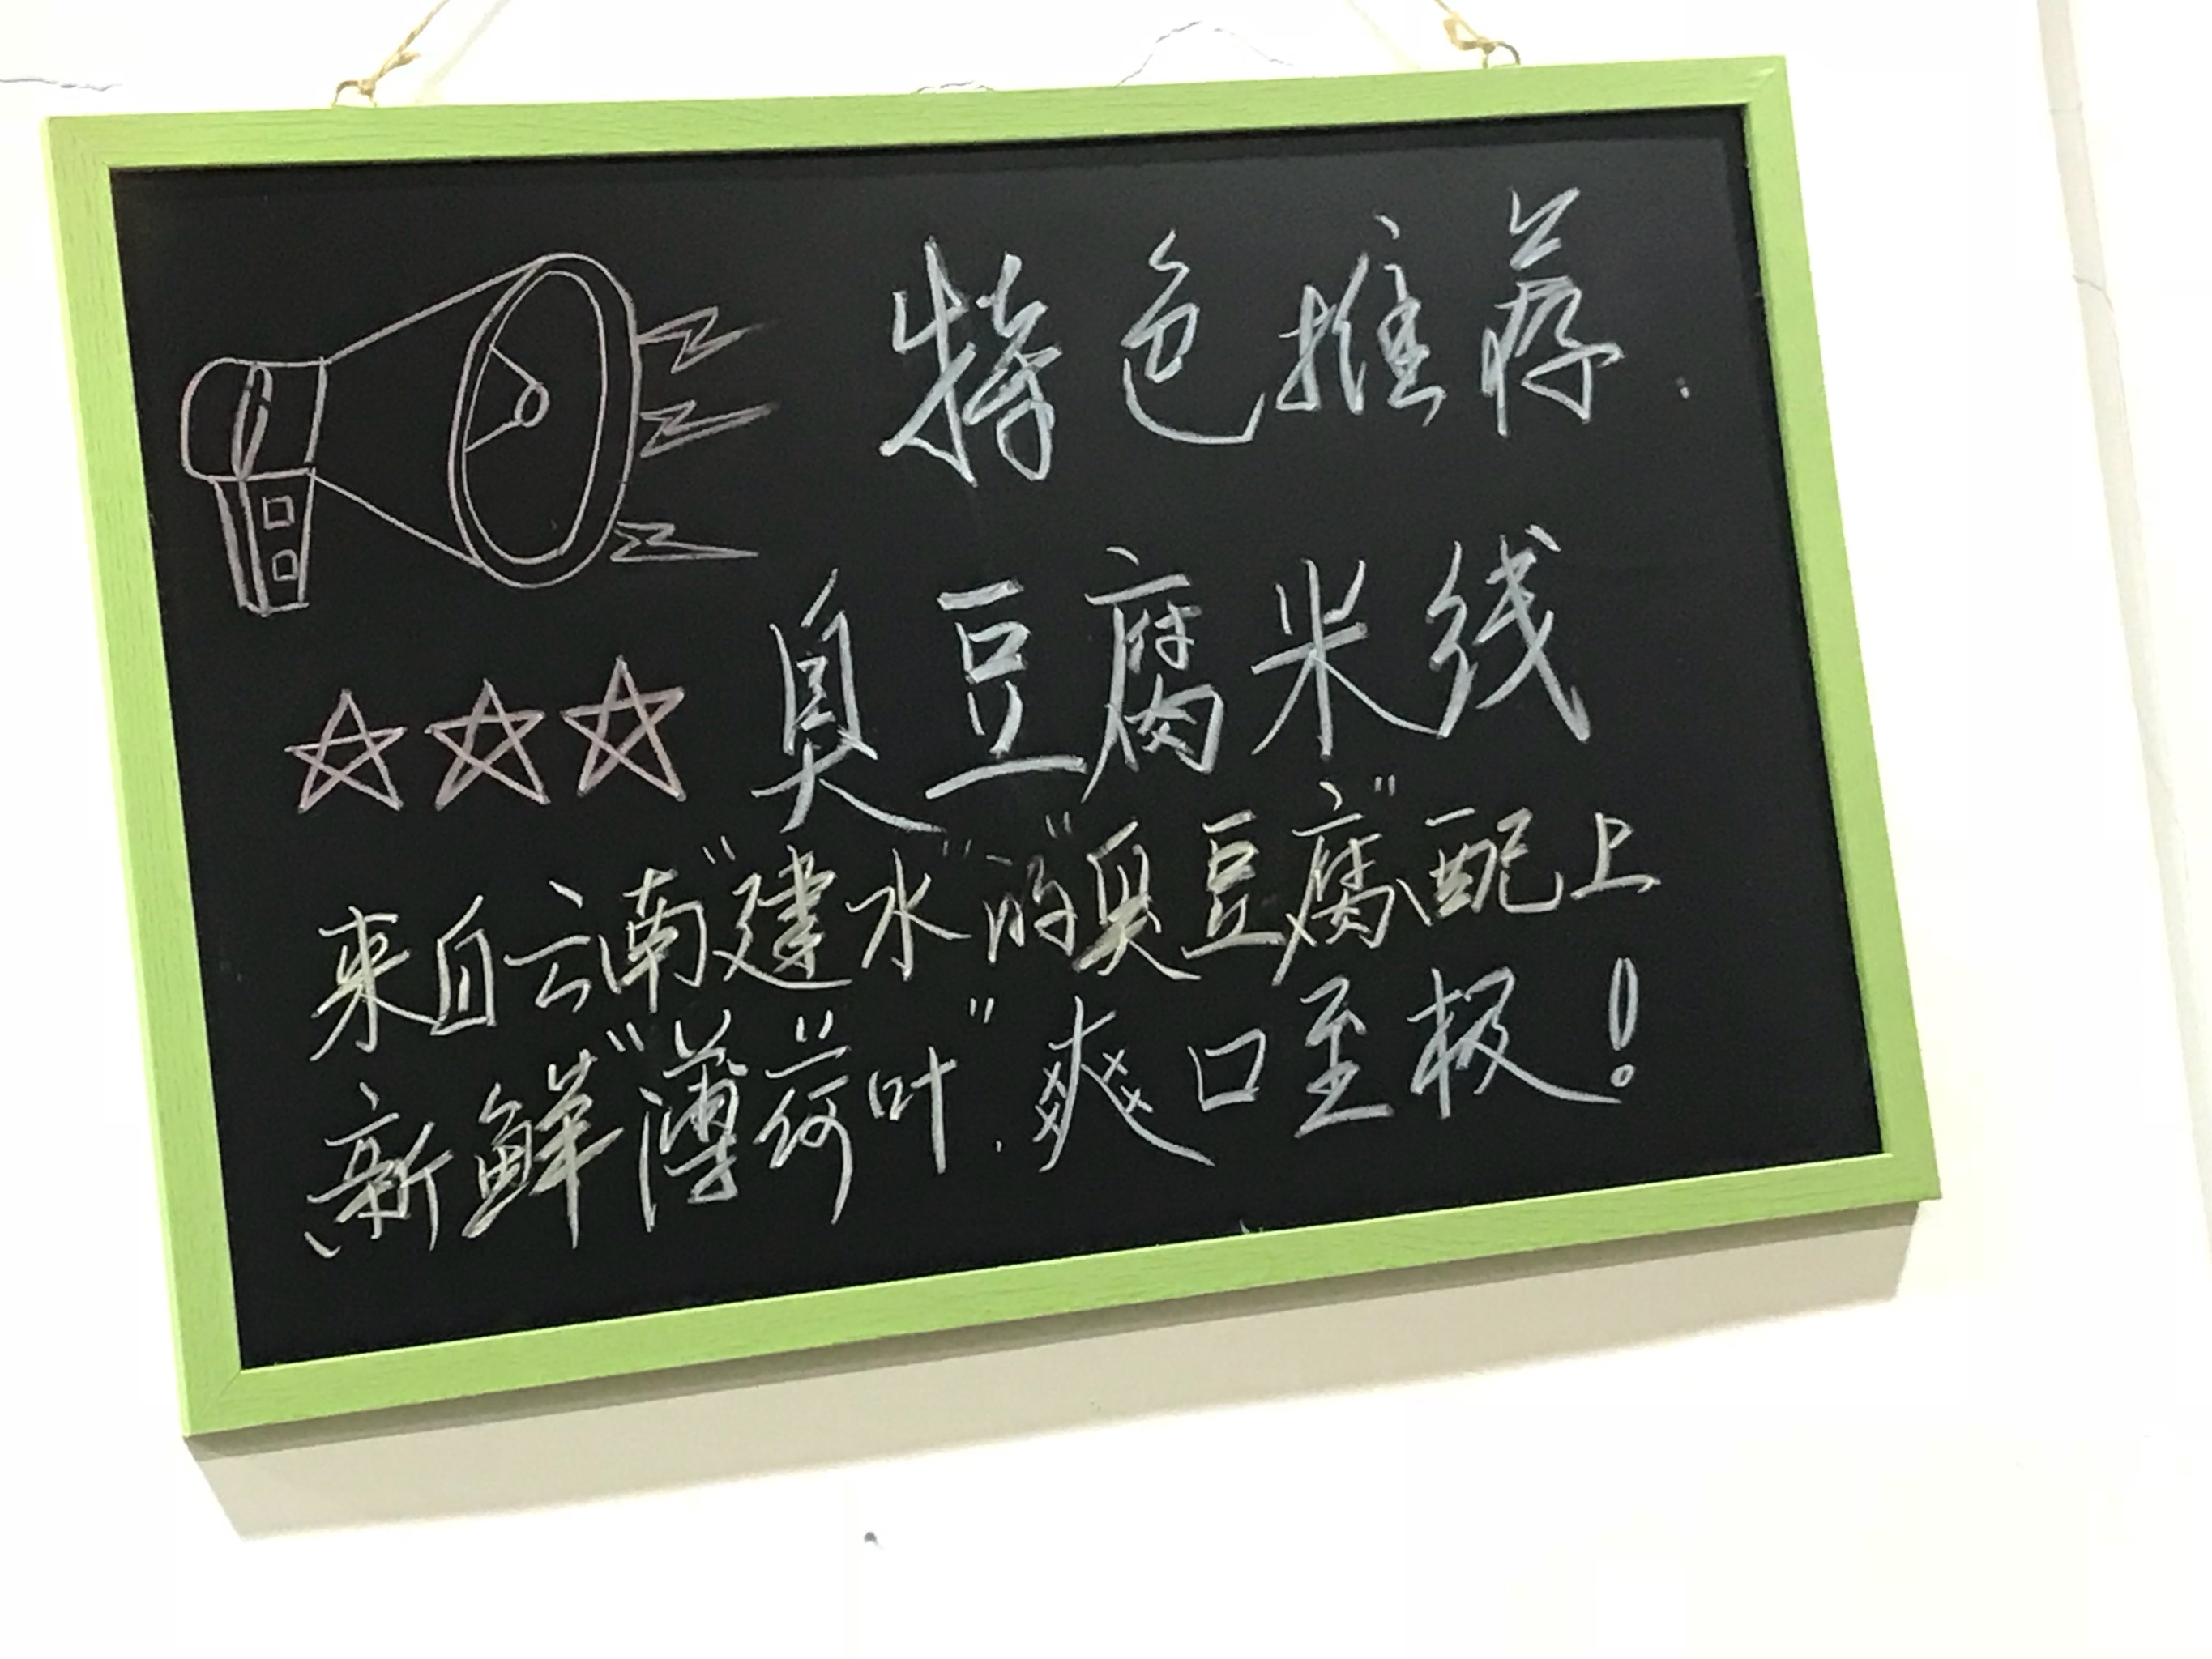 特色推荐.
臭豆腐米线
来自云南"建水"的"臭豆腐"配上
新鲜"薄荷叶".爽口至极!